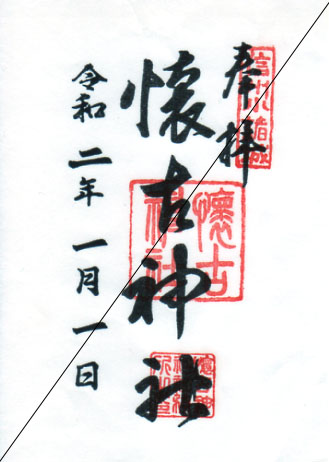 奉拝
懐古神社
令和二年一月一日
懐古
神社